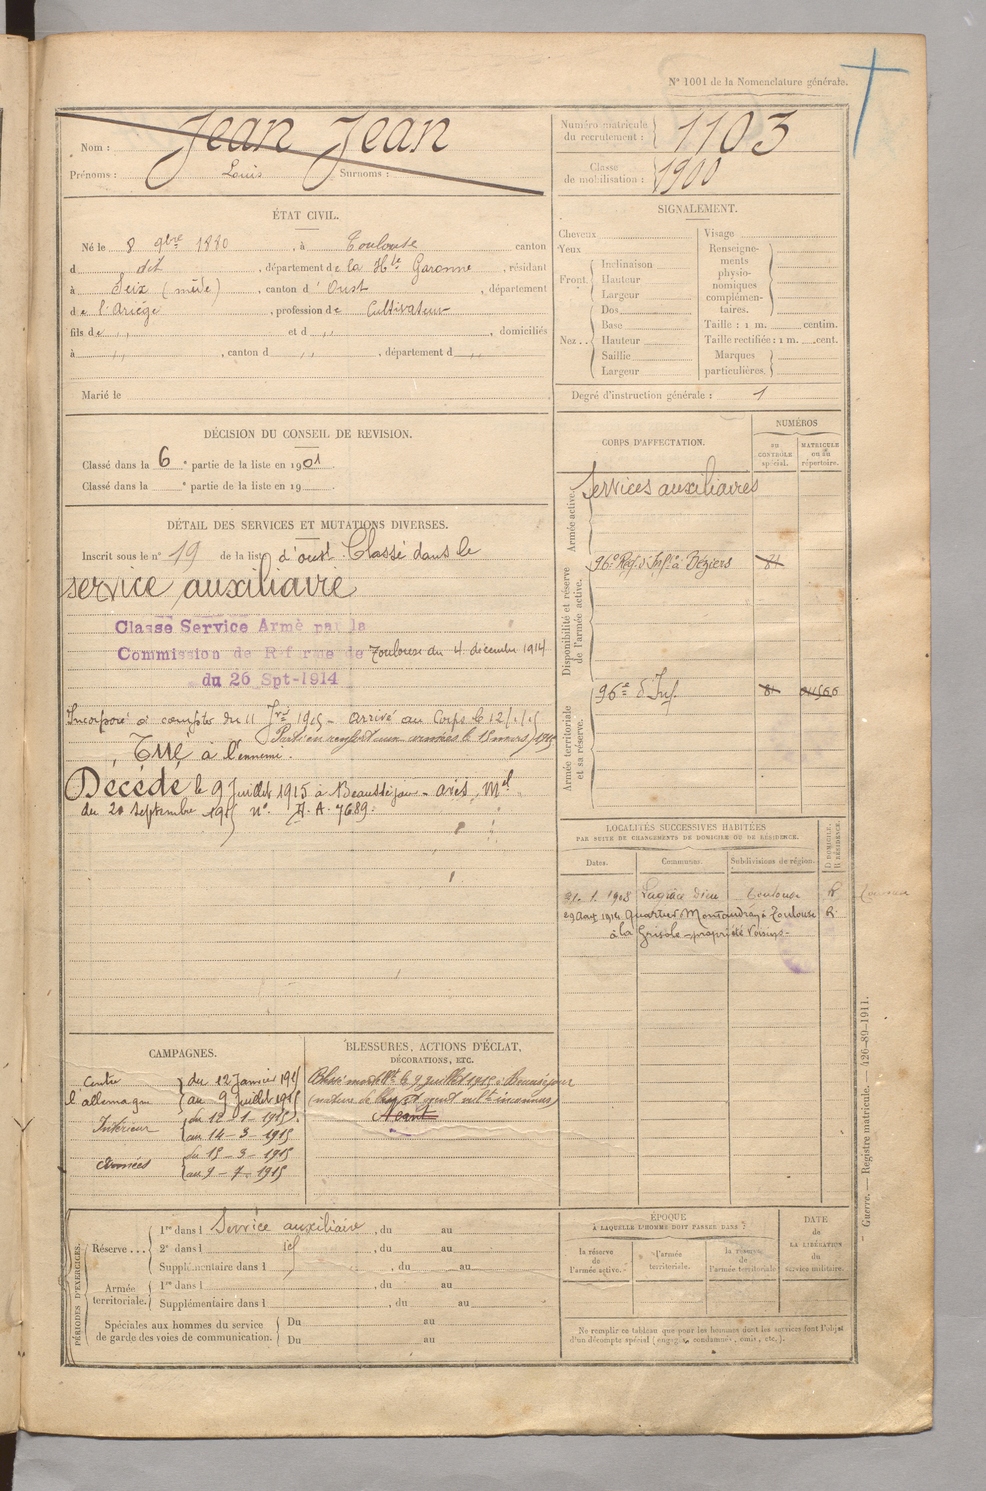 N° 1001 de la Nomenclature générale.
Nom : Jean Jean
Prénoms : Louis Surnoms :
Numéro matricule du recrutement : 1103
Classe de mobilisation : 1900
ÉTAT CIVIL.
Né le 8 9bre 1880, à Toulouse canton
d dit, département de la Hte Garonne, résidant
à Seix (même), canton d'Oust, département
de l'Ariège, profession de Cultivateur
fils de ,, et d ,, , domiciliés
à ,, , canton d ,, , département d ,,
Marié le
SIGNALEMENT.
Cheveux
Yeux
Front. Inclinaison
Hauteur
Largeur
Nez.. Dos
Base
Hauteur
Saillie
Largeur
Visage
Renseignements physionomiques complémentaires.
Taille : 1 m. centim.
Taille rectifiée : 1 m. cent.
Marques particulières.
Degré d'instruction générale : 1
DÉCISION DU CONSEIL DE REVISION.
Classé dans la 6e partie de la liste en 1901
Classé dans la e partie de la liste en 19
DÉTAIL DES SERVICES ET MUTATIONS DIVERSES.
Inscrit sous le n° 19 de la liste d'oust. Classé dans le
service auxiliaire
Classe Service Armè par la
Commission de Réforme de Toulouse du 4 décembre 1914
du 26 Spt-1914
Incorporé à compter du 11 Jer 1915 - arrivé au Corps le 12/1/15
Tué à l'ennemi.
Décédé le 9 Juillet 1915 à Beauséjour - avis Mel
du 20 septembre 1915 n°. A. 7689.
CORPS D'AFFECTATION.
NUMÉROS
AU CONTRÔLE spécial.
MATRICULE ou au répertoire.
Armée active.
services auxiliaires
Disponibilité et réserve de l'armée active.
96e Rég. d'Inf. à Béziers 81
Armée territoriale et sa réserve.
96e d'Inf. 81
LOCALITÉS SUCCESSIVES HABITÉES
PAR SUITE DE CHANGEMENTS DE DOMICILE OU DE RÉSIDENCE.
Dates. Communes. Subdivisions de région. D DOMICILE. R RÉSIDENCE.
21. 1. 1908 Lagrâce Dieu Toulouse R
29 Aout 1914 Quartier Montaudran à Toulouse R
à la Grisole - propriété Voisins -
CAMPAGNES.
Contre l'allemagne du 12 Janvier 1915
au 9 Juillet 1915
Intérieur du 12-1-1915
au 14-3-1915
Armées du 15-3-1915
au 9-7-1915
BLESSURES, ACTIONS D'ÉCLAT,
DÉCORATIONS, ETC.
Blessé mortellt le 9 juillet 1915 à Beauséjour
Néant
PÉRIODES D'EXERCICES.
Réserve... 1re dans l Service auxiliaire, du au
2e dans l id, du au
Supplémentaire dans l , du au
Armée territoriale. 1re dans l , du au
Supplémentaire dans l , du au
Spéciales aux hommes du service de garde des voies de communication.
Du au
Du au
ÉPOQUE
À LAQUELLE L'HOMME DOIT PASSER DANS :
la réserve de l'armée active.
l'armée territoriale.
la réserve de l'armée territoriale
DATE de LA LIBÉRATION du service militaire.
Ne remplir ce tableau que pour les hommes dont les services font l'objet
d'un décompte spécial (engagés, condamnés, omis, etc.).
Guerre. — Registre matricule. — 426-89-1911.